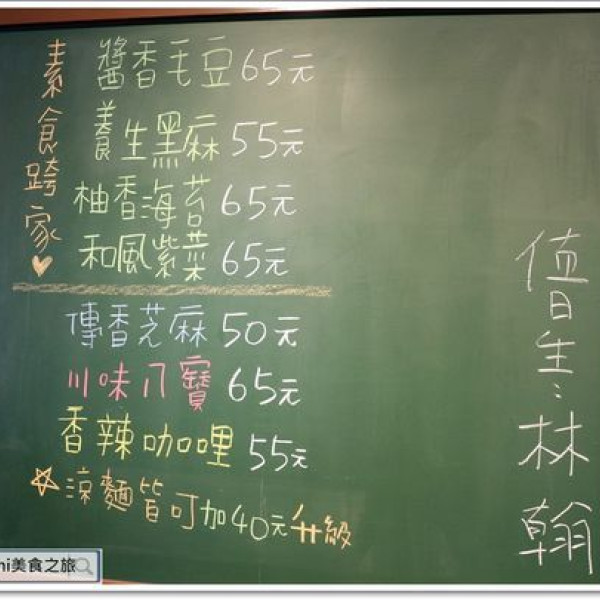 素食跨家♥
醬香毛豆65元
養生黑麻55元
柚香海苔65元
和風紫菜65元
傳香芝麻50元
川味八寶65元
香辣咖哩55元
☆涼麵皆可加40元升級
值日生:林翰
ni美食之旅